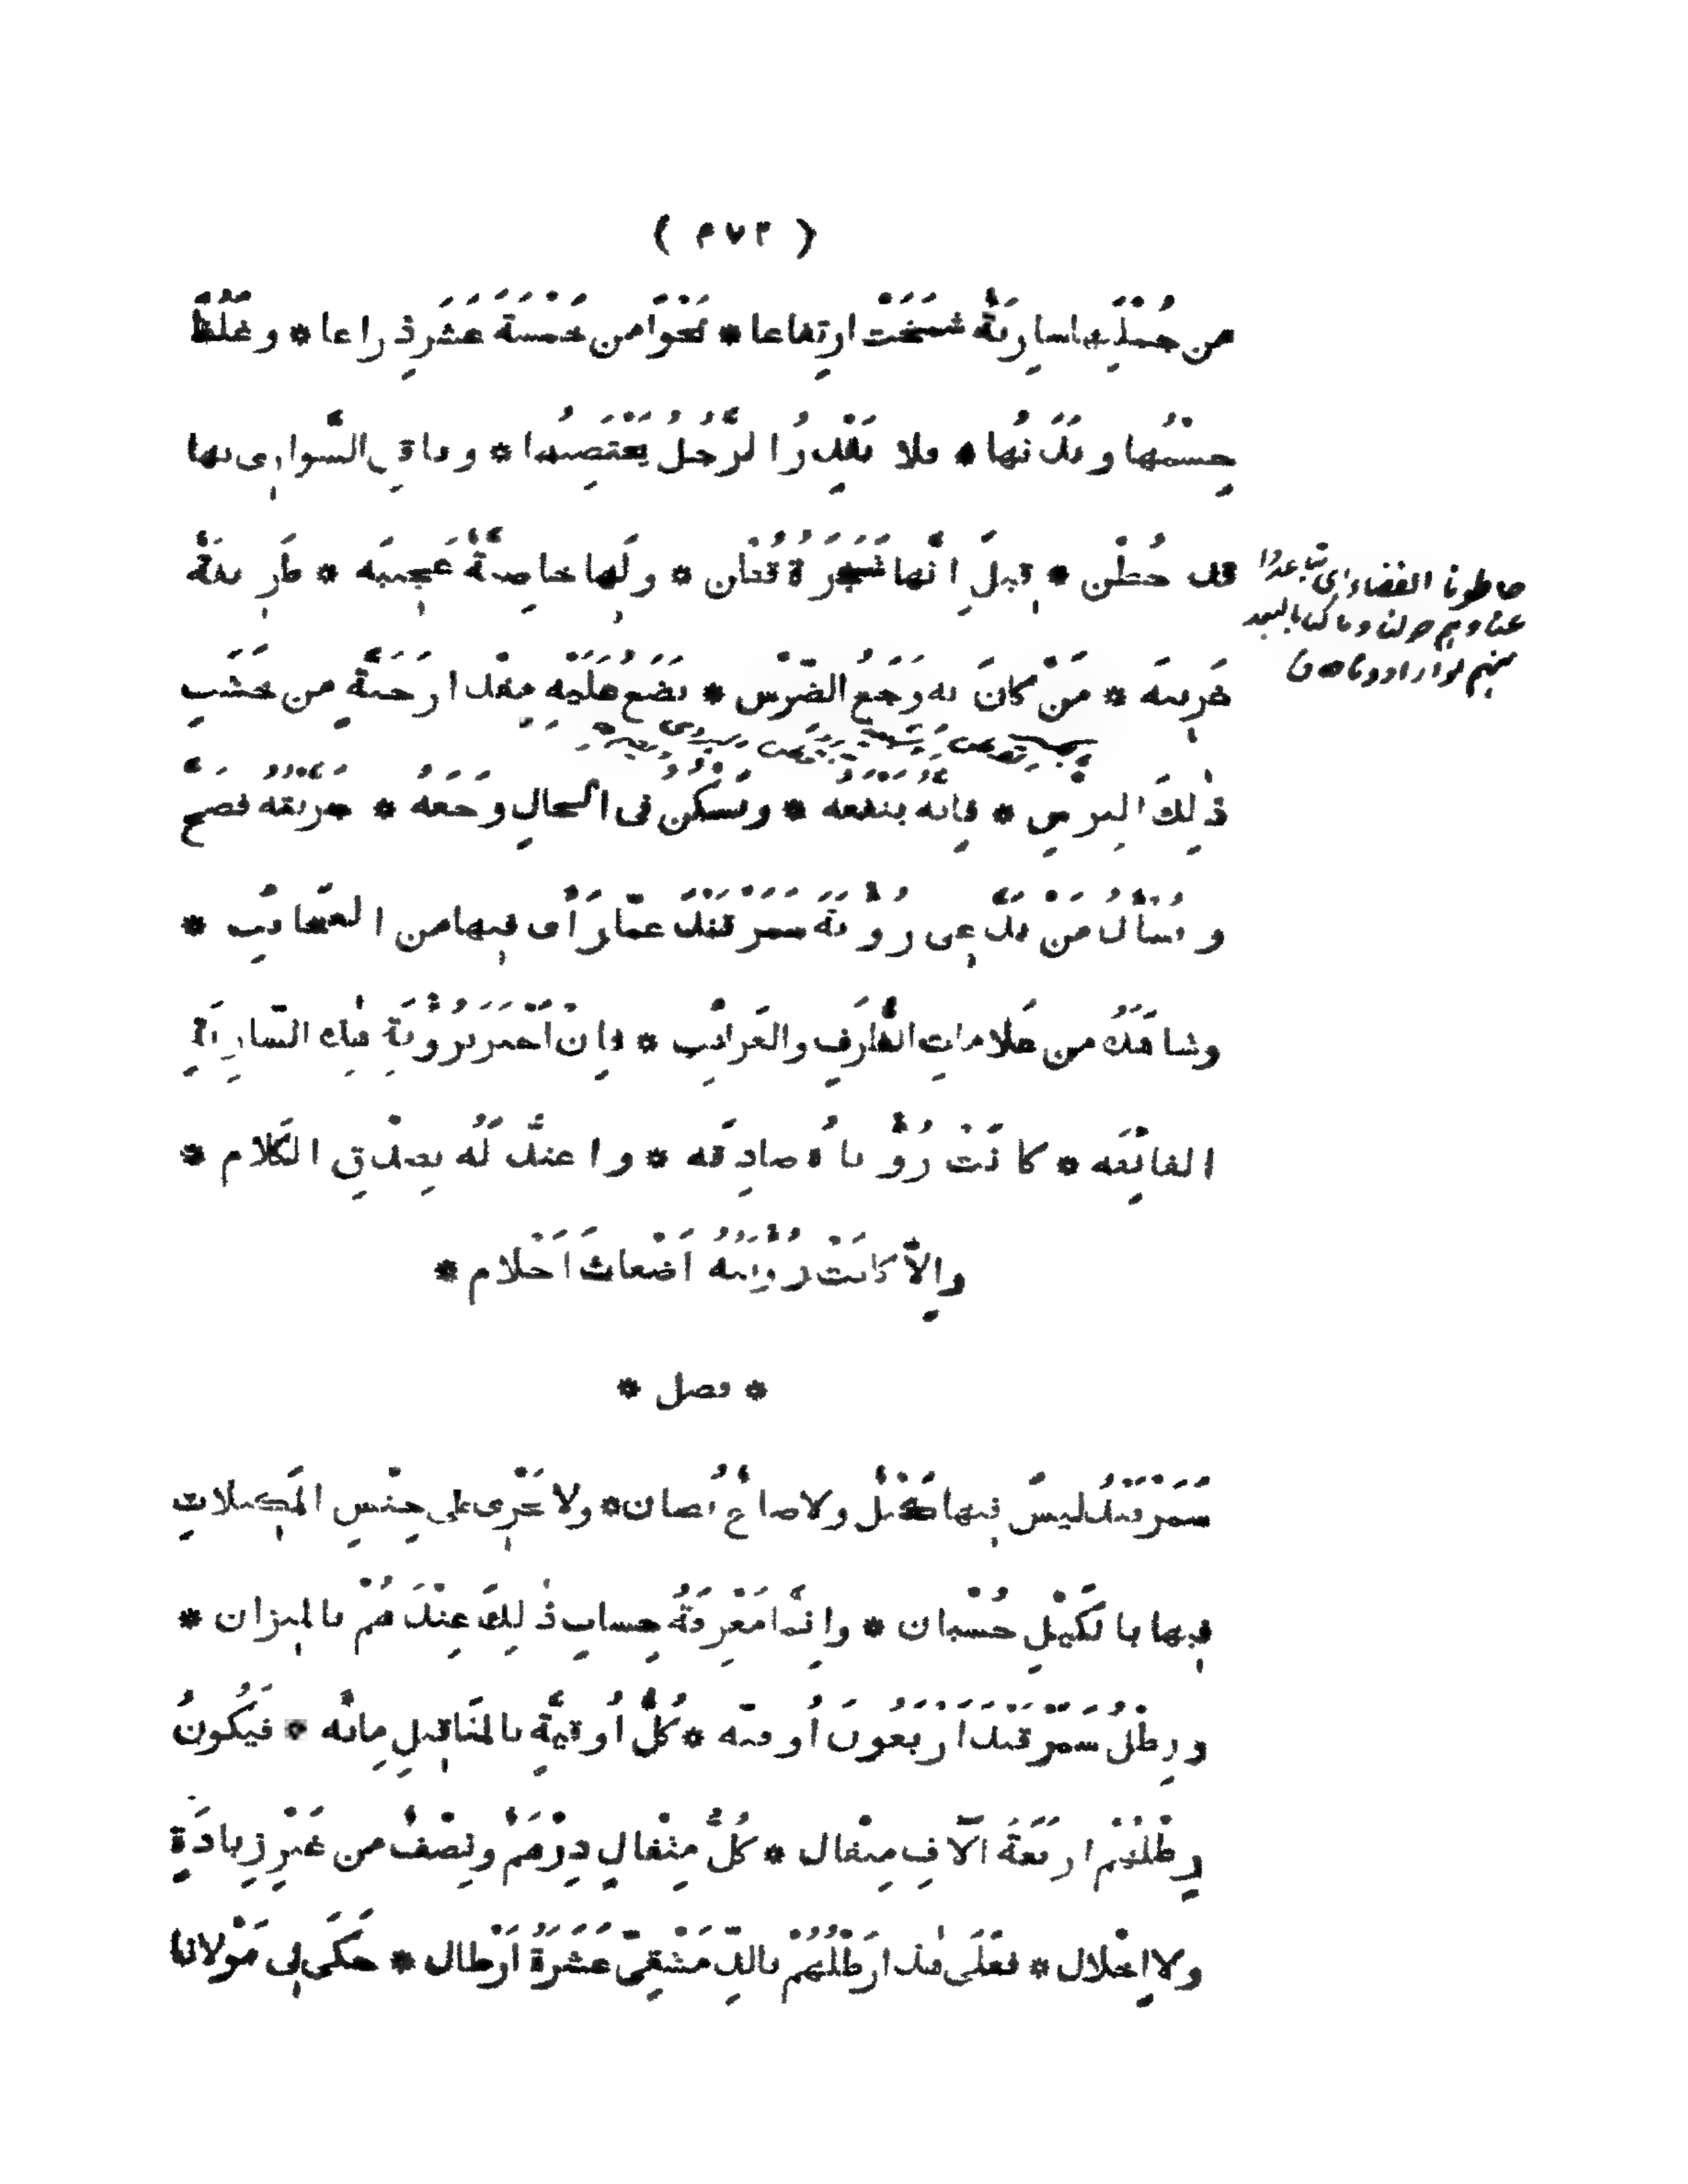 من جُمْلَتِها سارِيَةٌ شَمَخَتْ ارتِفاعا * نَحْوًا من خَمْسَةَ عَشَرَ ذِراعا * وغَلُظَ
جِسْمُها وبَدَنُها * فلا يَقْدِرُ الرَّجُلُ يَحْتَضِنُها * وباقي السَّواري بها
قد حُطْن * قيلَ انَّها شَجَرَةُ قُطْن * ولَها خاصيَّةٌ عَجيبَه * طَريقَةٌ
غَريبَه * مَنْ كانَ به وَجَعُ الضِّرْس * يَضَعُ عَلَيْهِ مِقْدارَ حَبَّةٍ من خَشَبِ
ذٰلِكَ البرس * فانَّهُ يَنْفَعُه * ويُسَكِّنُ فى الحالِ وَجَعَه *
ويُسْأَلُ مَنْ يَدَّعى رُؤْيَةَ سَمَرْقَنْدَ عَمّا رَأَى فيها من العَجائب *
وشاهَدَهُ من عَلاماتِ الطُّرَفِ والغَرائِب * فانْ اَخْبَرَ بِرُؤْيَةِ هٰذِهِ السَّارِيَةِ
الفائِقَه * كانَتْ رُؤْياهُ صادِقَه * واعتدَّ لَهُ بِصِدْقِ الكَلام *
والّا كانَتْ رُؤْيَتُهُ اَضْغاثَ اَحْلام *
* فصل *
سَمَرْقَنْدُ ليسَ فيها كَيْلٌ ولا صاعٌ يُصان * ولا يَجْرِى على جِنْسِ المَكيلاتِ
فيها بالكَيْلِ حُسْبان * وانَّما مَعْرِفَةُ حِسابِ ذٰلِكَ عِنْدَهُمْ بالميزان *
ورِطْلُ سَمَرْقَنْدَ اَرْبَعُونَ اُوقيَّه * كُلُّ اُوقيَّةٍ بالمَثاقيلِ مِائَه * فَيَكُونُ
رِطْلُهُمْ اربَعَةَ آلافِ مِثْقال * كُلُّ مِثْقالٍ دِرْهَمٌ ونِصْفٌ من غَيْرِ زِيادَةٍ
ولا اِخْلال * فعَلَى هٰذا رَطْلُهُمْ بالدِّمَشْقِىِّ عَشَرَةُ اَرْطال * حَكَى لى مَوْلانا